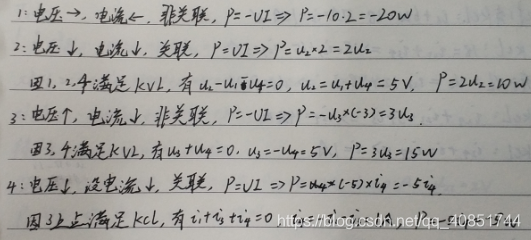 1:电压→,电流←,非关联,P=-UI⇒P=-10·2=-20W
2:电压↓,电流↓,关联,P=UI⇒P=u₂×2=2u₂
因1,2,4满足KVL,有u₂-u₁-u₄=0,u₂=u₁+u₄=5V,P=2u₂=10W
3:电压↑,电流↓,非关联,P=-UI⇒P=-u₃×(-3)=3u₃.
因3,4满足KVL,有u₃+u₄=0,u₃=-u₄=5V,P=3u₃=15W
4:电压↓,设电流↓,关联,P=UI⇒P=(-5)×i₄=-5i₄.
因3上点满足KCL,有i+i₃+i₄=0
https://blog.csdn.net/qq_40851744